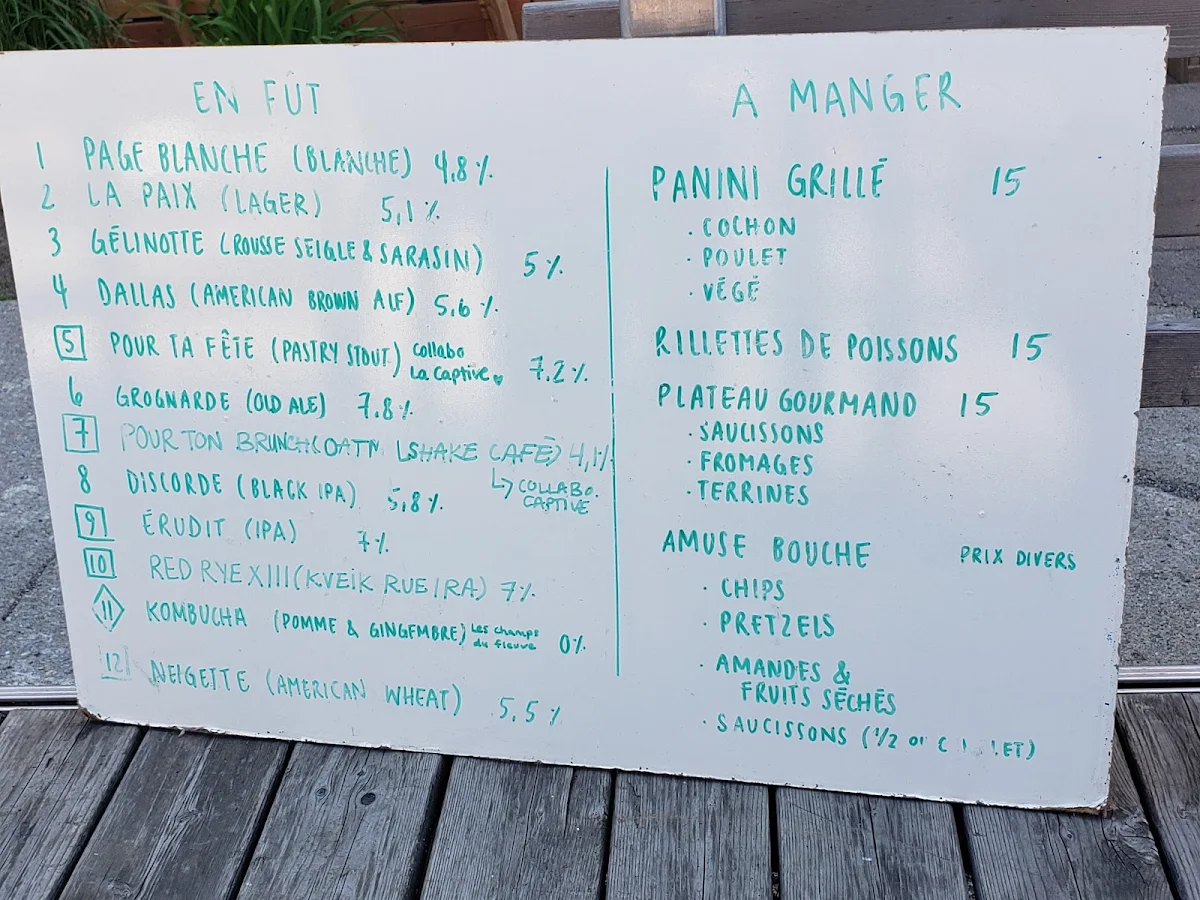 EN FÛT
1 PAGE BLANCHE (BLANCHE) 4,8%
2 LA PAIX (LAGER) 5,1%
3 GÉLINOTTE (ROUSSE SEIGLE & SARASIN) 5%
4 DALLAS (AMERICAN BROWN ALE) 5,6%
5 POUR TA FÊTE (PASTRY STOUT) Collabo La Captive 7.2%
6 GROGNARDE (OLD ALE) 7.8%
7 POUR TON BRUNCH (SHAKE CAFÉ) 4,1%
↳ COLLABO.
CAPTIVE
8 DISCORDE (BLACK IPA) 5,8%
9 ÉRUDIT (IPA) 7%
10 RED RYE XIII (KVEIK 7%
11 KOMBUCHA (POMME & GINGEMBRE) Les champs du fleuve 0%
12 NEIGETTE (AMERICAN WHEAT) 5,5%
A MANGER
PANINI GRILLÉ 15
· COCHON
· POULET
· VÉGÉ
RILLETTES DE POISSONS 15
PLATEAU GOURMAND 15
· SAUCISSONS
· FROMAGES
· TERRINES
AMUSE BOUCHE PRIX DIVERS
· CHIPS
· PRETZELS
· AMANDES &
FRUITS SÉCHÉS
· SAUCISSONS (1/2